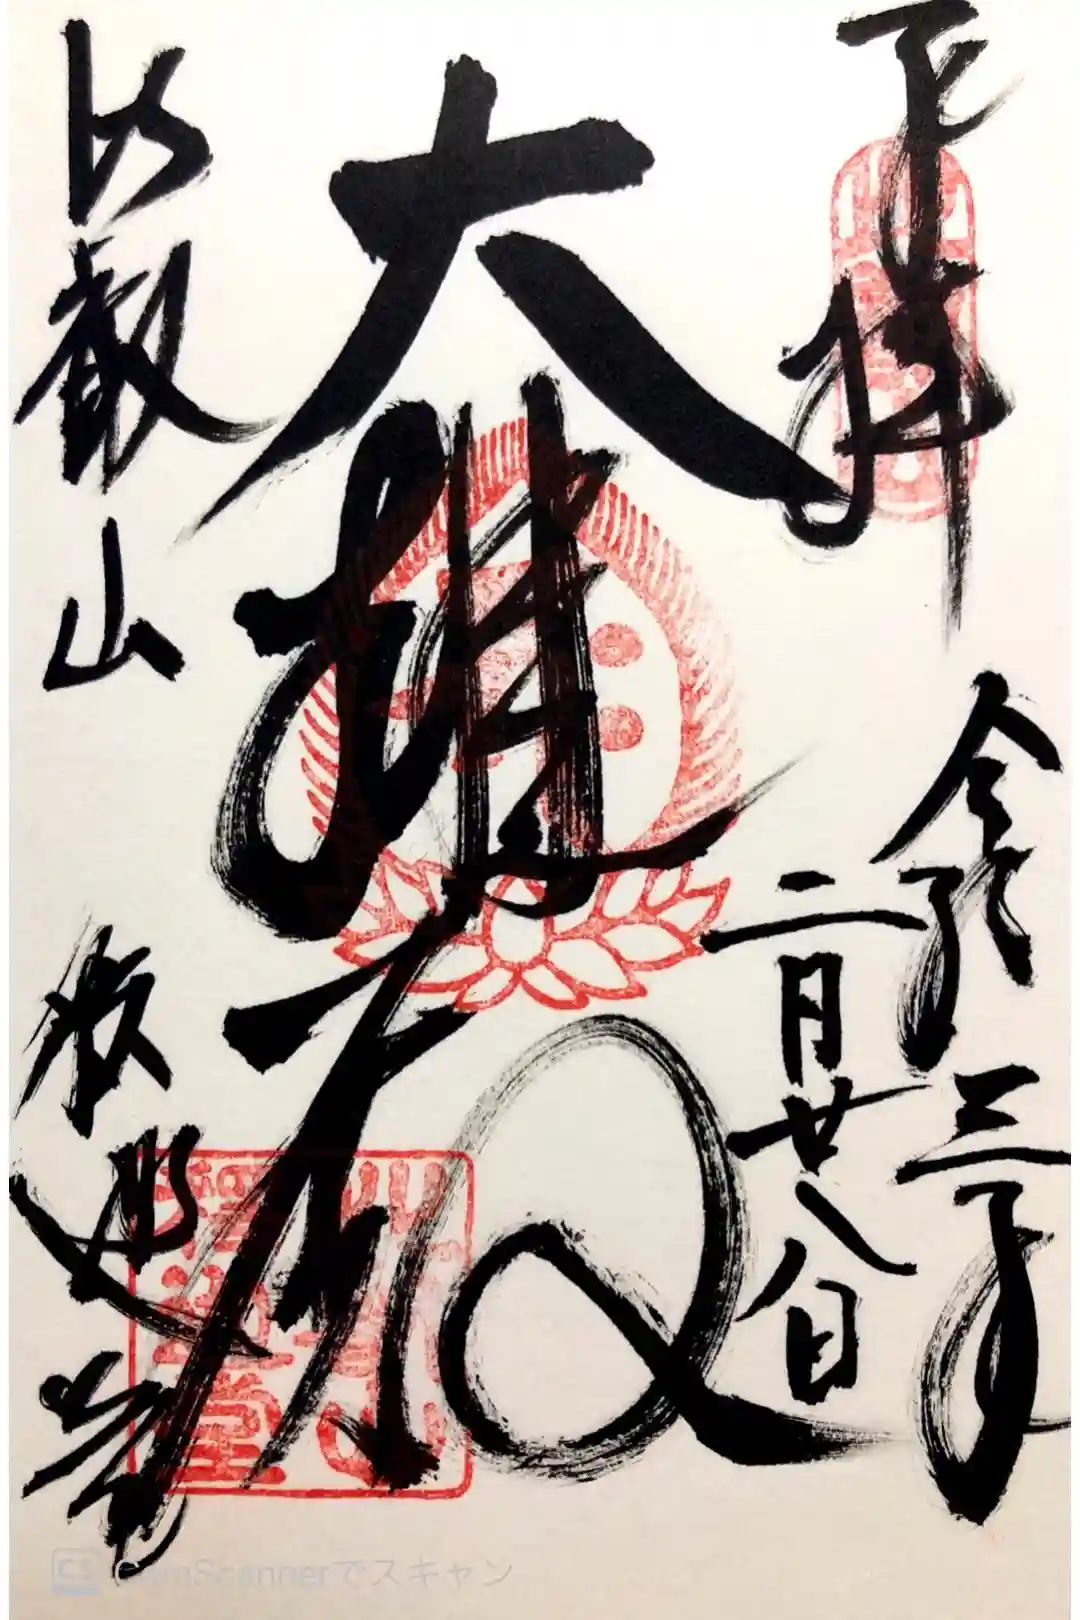 奉拝
令和三年
二月廿八日
大雄殿
比叡山
釈迦堂
CS CamScannerでスキャン